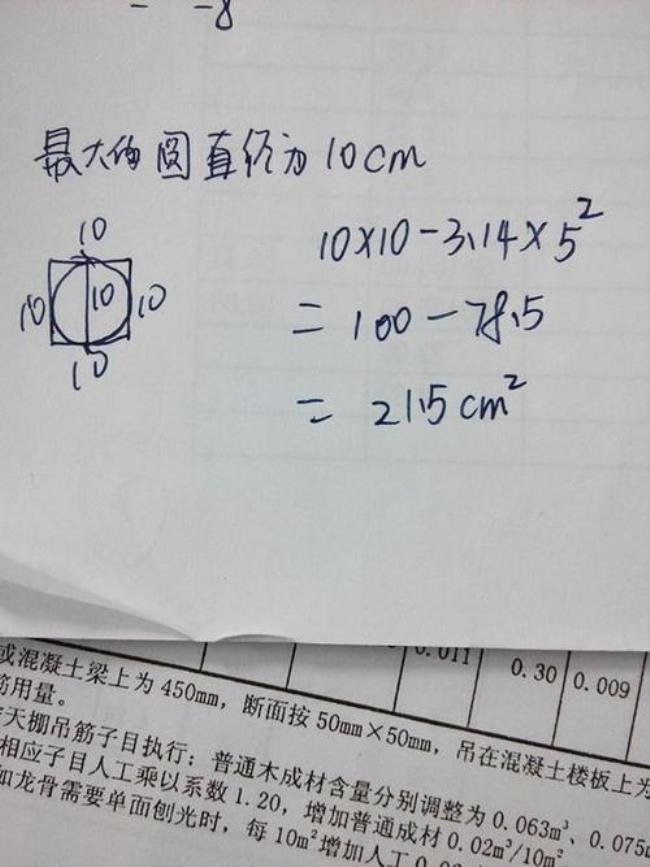 = -8
最大的圆直径为10cm
10
10 10 10
10
10×10-3.14×5²
= 100-78.5
= 21.5cm²
0.011 0.30 0.009
或混凝土梁上为450mm，断面按50mm×50mm，吊在混凝土楼板上为
筋用量。
天棚吊筋子目执行；普通木成材含量分别调整为0.063m³、0.075m
相应子目人工乘以系数1.20，增加普通成材0.02m³/10m²
如龙骨需要单面刨光时，每10m²增加人工